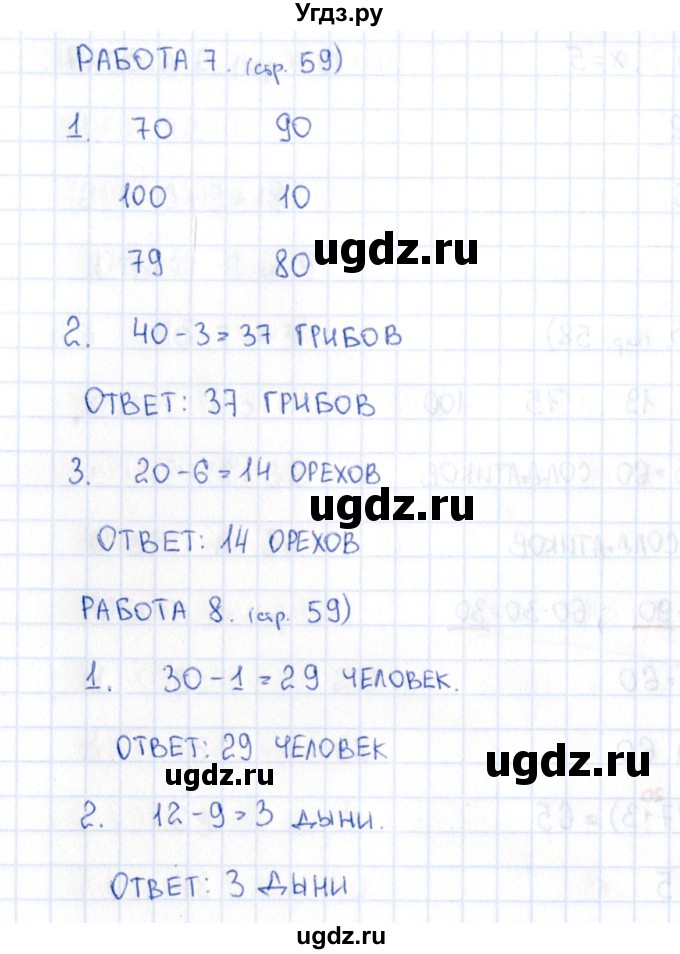 Угдз.ру
РАБОТА 7. (стр. 59)
1. 70 90
100 10
79 80
ugdz.ru
2. 40-3=37 ГРИБОВ
ОТВЕТ: 37 ГРИБОВ
3. 20-6=14 ОРЕХОВ
ugdz.ru
ОТВЕТ: 14 ОРЕХОВ
РАБОТА 8. (стр. 59)
1. 30-1=29 ЧЕЛОВЕК.
ОТВЕТ: 29 ЧЕЛОВЕК
ugdz.ru
ugdz.ru
2. 12-9=3 ДЫНИ.
ОТВЕТ: 3 ДЫНИ
ugdz.ru